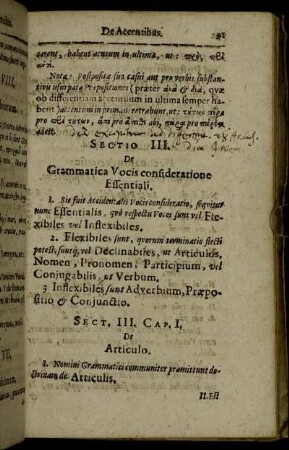 De Accentibus.
carent, habent acutum in ultima, ut: πρὸς, πλὴ
Nota: Postpositæ suo casui aut pro verbis substan-
tivis usurpatæ Præpositiones (præter ἀνὰ & διὰ, quæ
ob differentiam accentuum in ultima semper ha-
bent) accentum in primam retrahunt, ut; τύτων πέρι
pro περὶ τύτων, ἄπο pro ἀπὸ
SECTIO III.
De
Grammatica Vocis consideratione
Essentiali.
1. Sic fuit Accidentalis Vocis consideratio, sequitur
nunc Essentialis, quo respectu Voces sunt vel Fle-
xibiles vel Inflexibiles.
2. Flexibiles sunt, quorum terminatio flecti
potest, suntq; vel Declinabiles, ut Articulus,
Nomen, Pronomen, Participium, vel
Conjugabilis, ut Verbum.
3 Inflexibiles sunt Adverbium, Præpo-
sitio & Conjunctio.
SECT. III. CAP. I.
De
Articulo.
1. Nomini Grammatici communiter præmittunt do-
ctrinam de Articulis.
II. Est